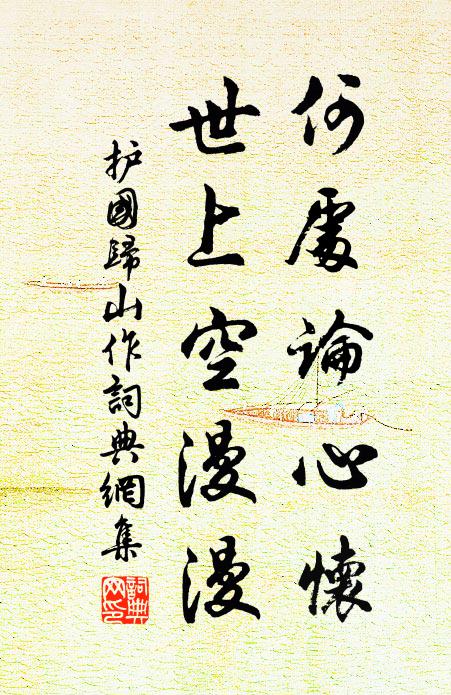 何處論心懷
世上空漫漫
护國歸山作詞典網集
詞典
网印